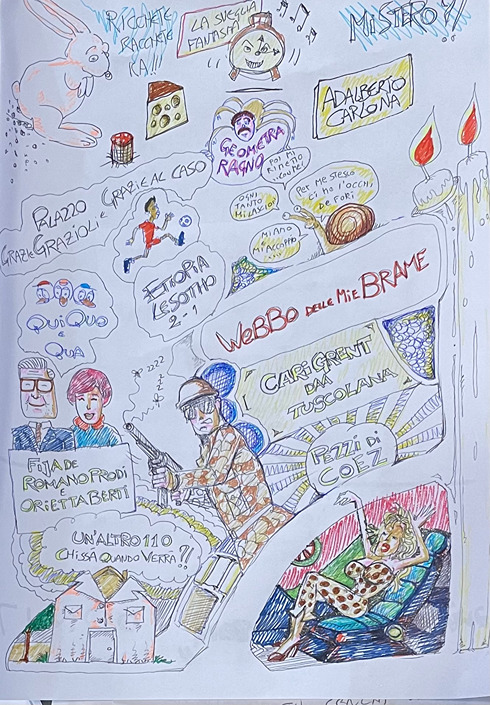 RICCHETE
RACCHETE
KA!!!
LA SVEGLIA
FANTASMA
MISTERO?!/
ADALBERTO
CARLONA
GEOMETRA
RAGNO
POI MI
RIPETO
OGNI
TANTO
MI LASCIO
PER ME STESCO
CI HO L'OCCHI
DE FORI
MI AMO
MI ACCOPPO
PALAZZO
GRAZIE GRAZIOLI E GRAZIE AL CASO
ETIOPIA
LESOTHO
2-1
QUI QUO
E
QUA
WEBBO DELLE MIE BRAME
CARI GRENT
DAA
TUSCOLANA
PEZZI DI
COEZ
ZZZZ
FIJA DE
ROMANO PRODI
E
ORIETTA BERTI
UN'ALTRO 110
CHISSÀ QUANDO VERRÀ?!